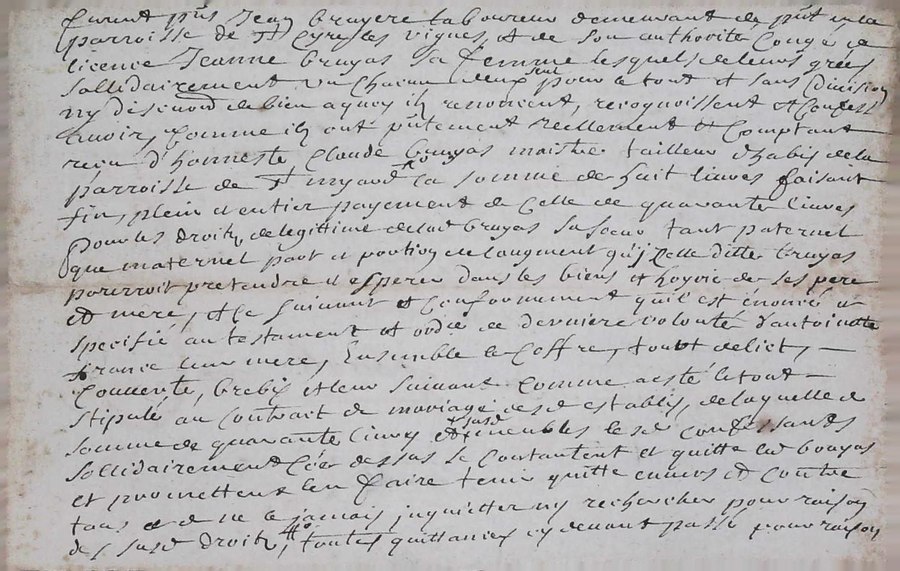 furent pñs Jean bruyere laboureur demeurant de pñt en la
parroisse de St Cyre les vignes, et de son authorite Congé et
licence Jeanne bruyas sa femme lesquels de leurs grées
sollidairement un chacun deux seul pour le tout et sans division
ny discution de bien a quoy ils renoncent, recognoissent et Confess
avoir, comme ils ont pñtement reellement et Comptant
receu d'honneste Claude bruyas maistre tailleur d'habis de la
parroisse de St myard la somme de huit livres faisant
fin, plein et entier payement de celle de quarante livres
pour les droits de legittime de lad bruyas sa soeur tant paternel
que maternel part et portion de laugment qu'jcelle ditte bruyas
pourroit pretendre et esperer dans les biens et hoyrie de ses pere
et mere, et le suivant et Conformement qu'il est énoncé et
specifié au testament et ordce de derniere volonté d'antoinette
france leur mere, Ensemble le Coffre, tout de lict, —
Couverte, brebis et leur suivant comme a esté le tout —
stipulé au Contrait de mariage desd establis, de laquelle de
somme de quarante livres et susd meubles lesd confessants
sollidairement Co'e dessus se contantent et quitte lad bruyas
et promettent len faire tenir quitte envers et contre
tous et de ne le jamais inquietter ny rechercher pour raison
des susd droits, toutes quittances cy devant passé pour raison